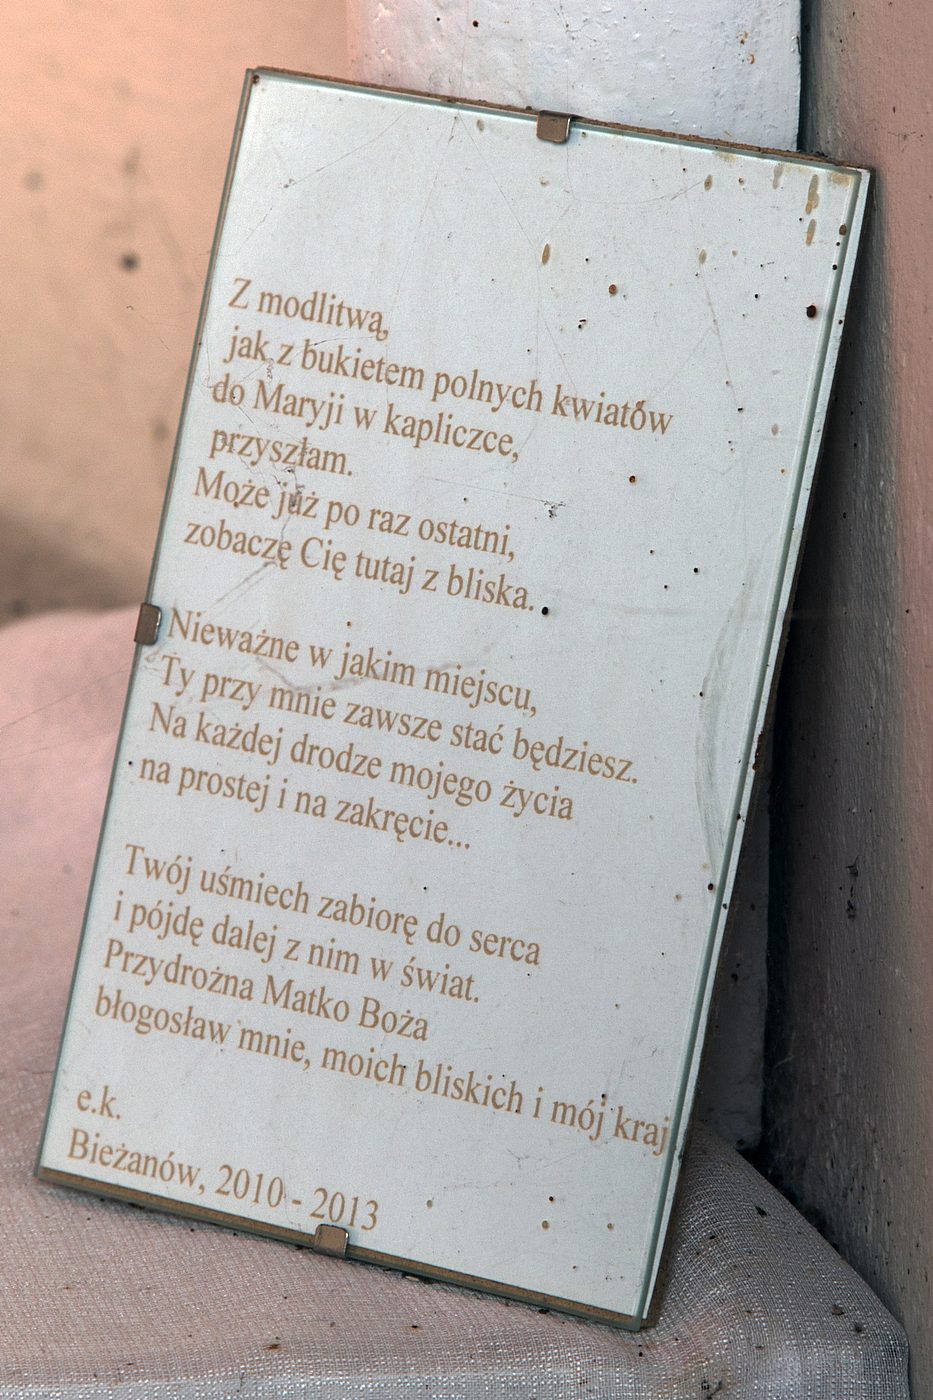 Z modlitwą,
jak z bukietem polnych kwiatów
do Maryji w kapliczce,
przyszłam.
Może już po raz ostatni,
zobaczę Cię tutaj z bliska.
Nieważne w jakim miejscu,
Ty przy mnie zawsze stać będziesz.
Na każdej drodze mojego życia
na prostej i na zakręcie...
Twój uśmiech zabiorę do serca
i pójdę dalej z nim w świat.
Przydrożna Matko Boża
błogosław mnie, moich bliskich i mój kraj
e.k.
Bieżanów, 2010 - 2013